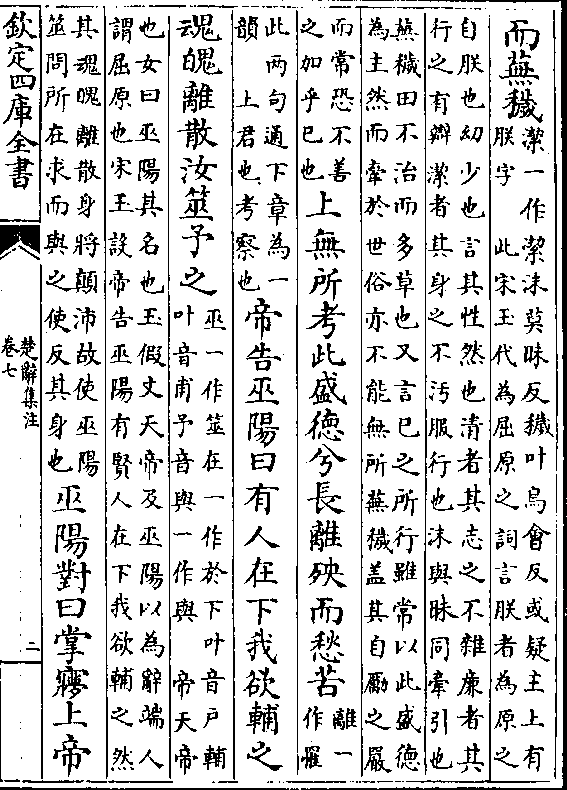 而蕪穢潔一作潔沬莫昧反穢叶烏會反或疑主上有
朕字 此宋玉代為屈原之詞言朕者為原之
自朕也幼少也言其性然也清者其志之不雜廉者其
行之有辨潔者其身之不汚服行也沬與昧同牽引也
蕪穢田不治而多草也又言已之所行雖常以此盛德
為主然而牽於世俗亦不能無所蕪穢盖其自勵之嚴
而常恐不善
之加乎已也
上無所考此盛德兮長離殃而愁苦離一
作罹
此兩句通下章為一
韻 上君也考察也
帝告巫陽曰有人在下我欲輔之
魂魄離散汝筮予之巫一作筮在一作於下叶音戶輔
叶音甫予音與一作與 帝天帝
也女曰巫陽其名也玉假文天帝及巫陽以為辭端人
謂屈原也宋玉設帝告巫陽有賢人在下我欲輔之然
其魂魄離散身將顛沛故使巫陽
筮問所在求而與之使反其身也
巫陽對曰掌㝱上帝
欽定四庫全書
楚辭集注
卷七
二